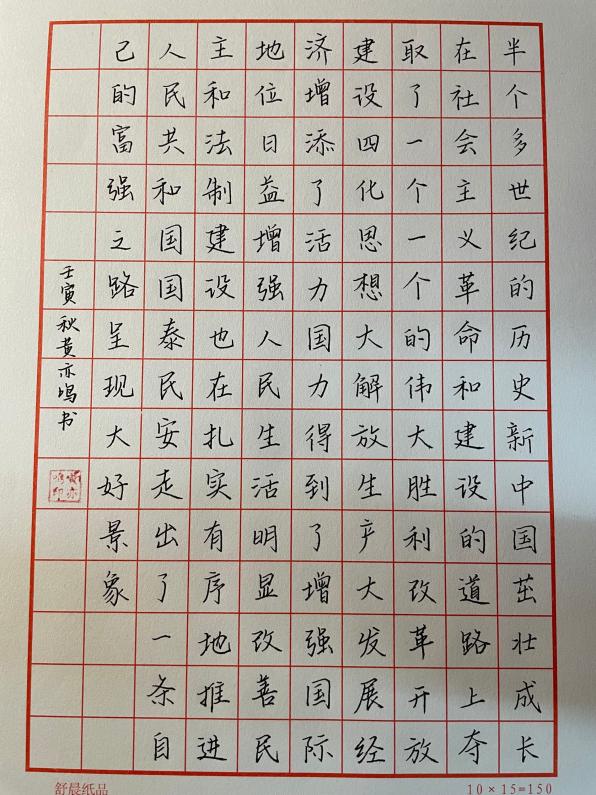 半个多世纪的历史新中国茁壮成长
在社会主义革命和建设的道路上夺
取了一个一个的伟大胜利改革开放
建设四化思想大解放生产大发展经
济增添了活力国力得到了增强国际
地位日益增强人民生活明显改善民
主和法制建设也在扎实有序地推进
人民共和国国泰民安走出了一条自
己的富强之路呈现大好景象
壬寅秋黄亦鸣书
舒晨纸品
10×15=150